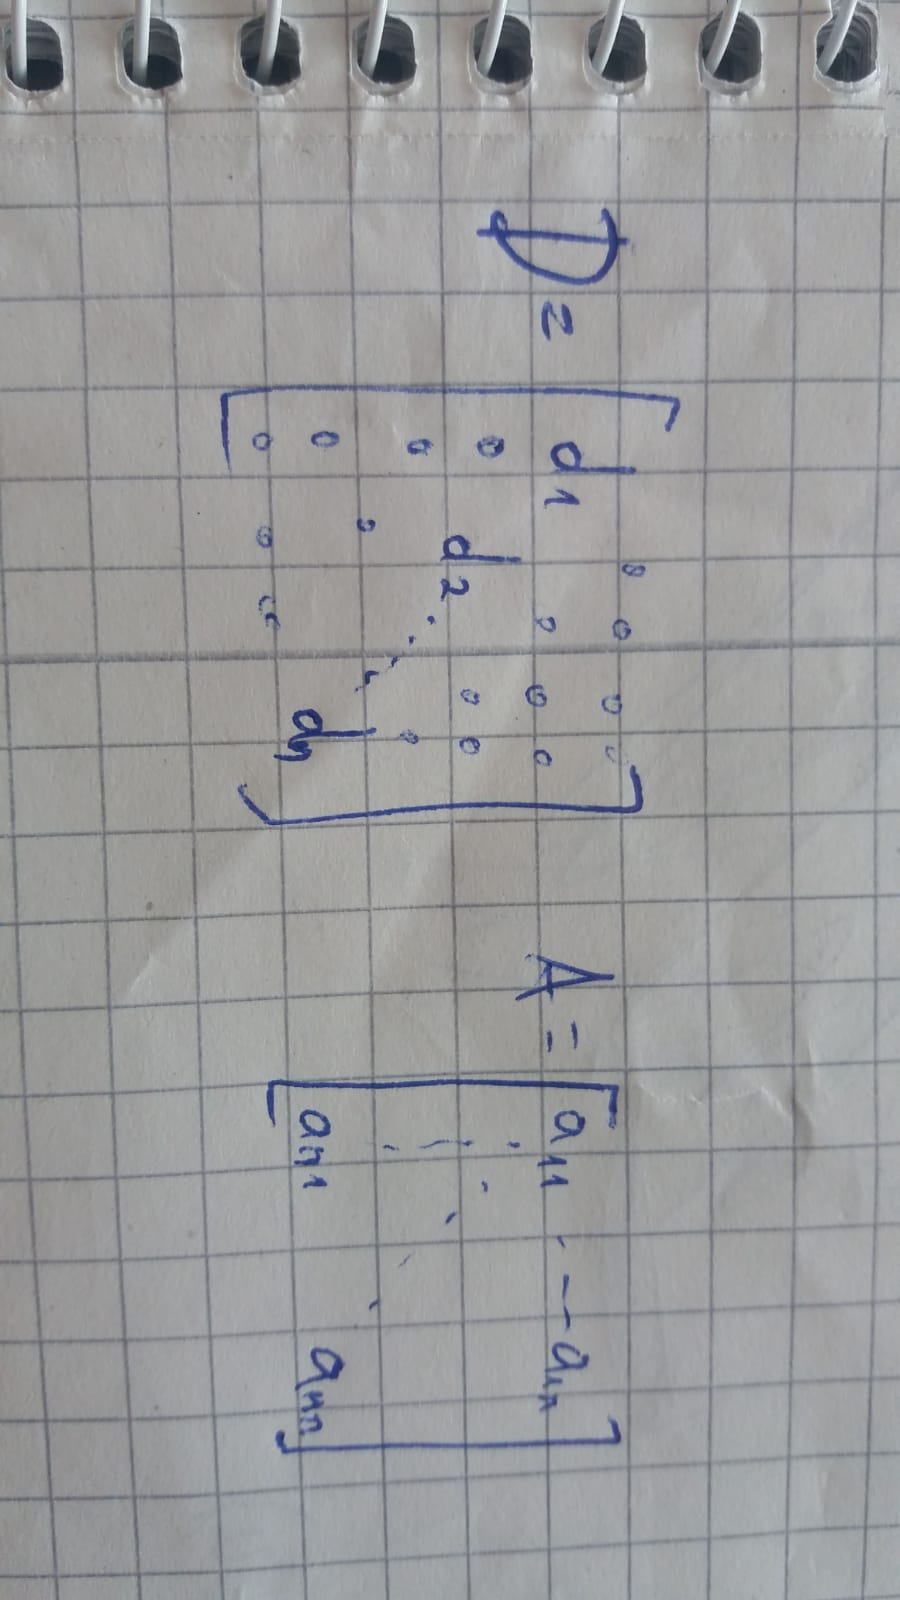 D = [ d1 0 0 0 0
0 0 0
0 d2 0 0
0 0
0
0 dn
0 0 0 ]
A = [ a11 . - — a1n
an1 ann ]